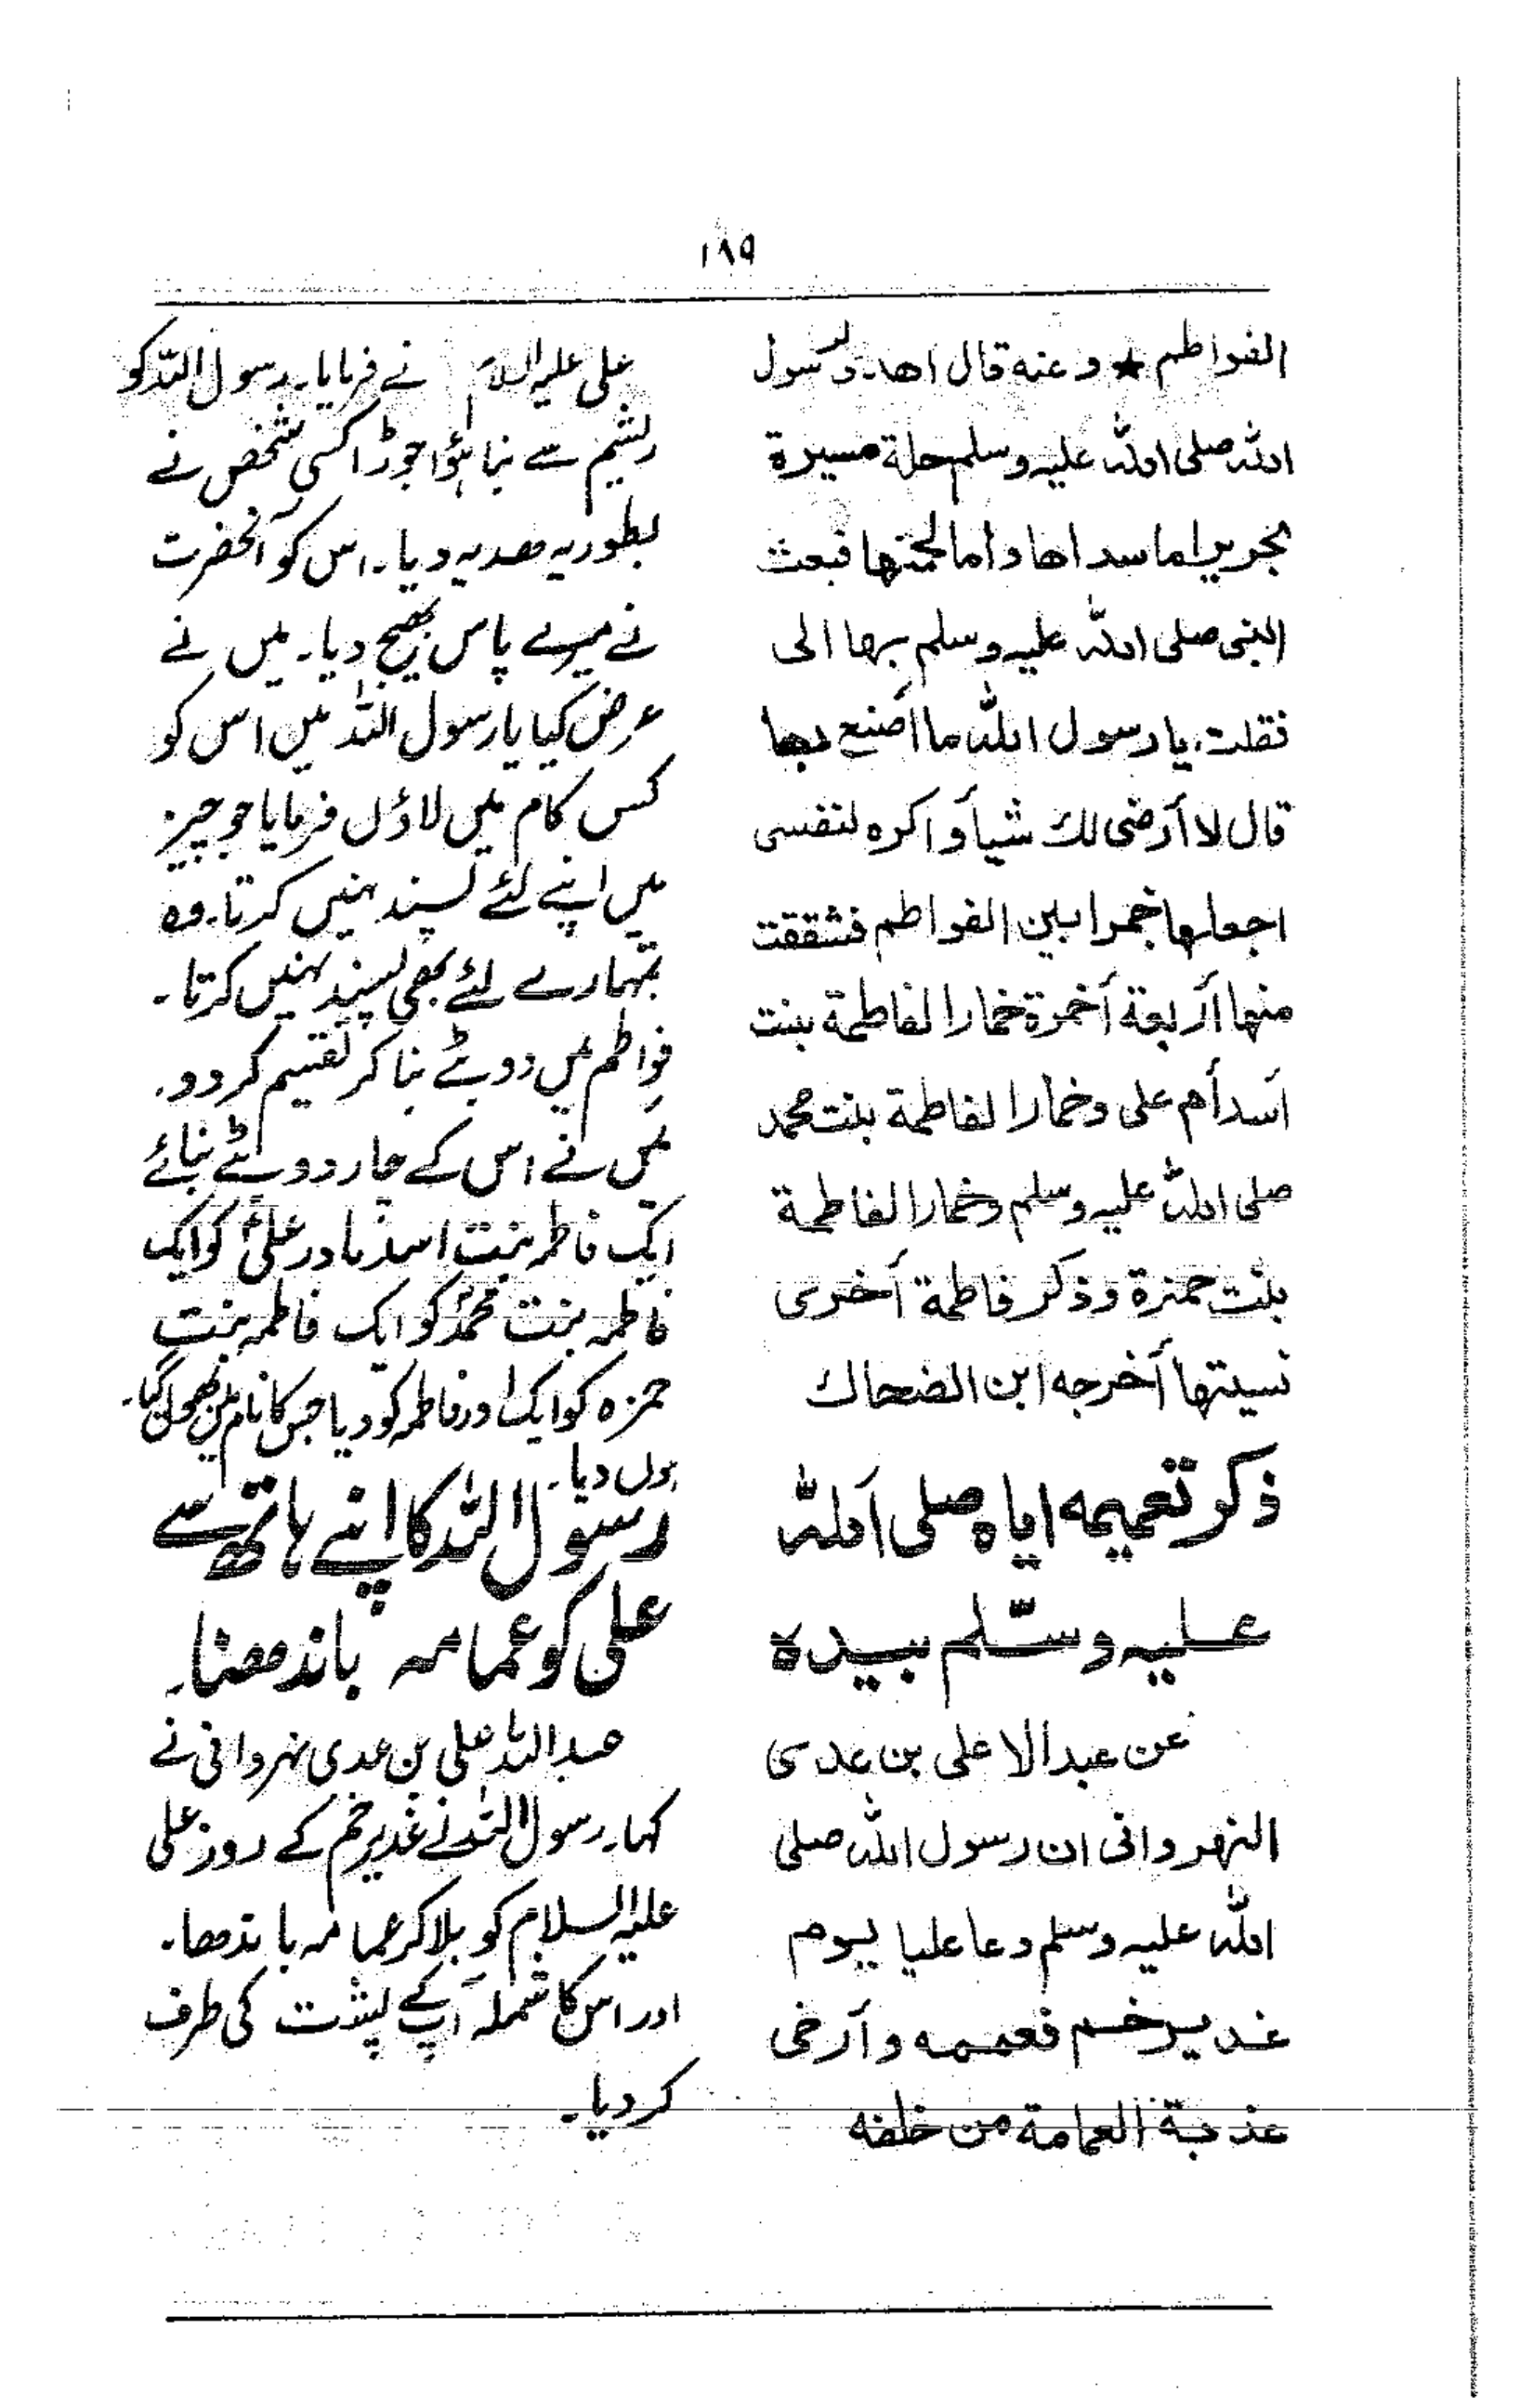 ۱۸۹
الفواطم ★ وعنه قال اهدی لرسول
الله صلی الله علیه وسلم حلة مسيرة
بحرير اما سداها واما لحمتها فبعث
النبی صلی الله علیه وسلم بها الی
فقلت یا رسول الله ما أصنع بها
قال لا أرضی لك شيأ و اکره لنفسی
اجعلها خمرا بین الفواطم فشققت
منها أربعة أخمرة خمارا لفاطمة بنت
أسد أم علی وخمارا لفاطمة بنت محمد
صلی الله علیه وسلم وخمارا لفاطمة
بنت حمزة وذکر فاطمة أخری
نسیتها أخرجه ابن الضحاك
ذکر تعمیمه ایاه صلی الله
علیه وسلّم بیده
عن عبد الاعلی بن عدی
النهروانی ان رسول الله صلی
الله علیه وسلم دعا علیا یوم
غدیر خم فعممه وأرخی
عذبة العمامة من خلفه
علی علیہ السلام نے فرمایا۔ رسول اللہ کو
ریشم سے بنا ہؤا جوڑا کسی شخص نے
بطور یہ ھدیہ دیا۔ اس کو آنحضرت
نے میرے پاس بھیج دیا۔ میں نے
عرض کیا یا رسول اللہ میں اس کو
کس کام میں لاؤں فرمایا جو چیز
میں اپنے لئے پسند نہیں کرتا۔ وہ
تمہارے لئے بھی پسند نہیں کرتا۔
فواطم میں دوپٹے بنا کر تقسیم کر دو۔
میں نے اس کے چار دوپٹے بنائے
ایک فاطمہ بنت اسد مادر علیؑ کو ایک
فاطمہ بنت محمدؐ کو ایک فاطمہ بنت
حمزہ کو ایک اور فاطمہ کو دیا جس کا نام میں بھول گیا۔
ہوں دیا۔
رسول اللہ کا اپنے ہاتھ سے
علی کو عمامہ باندھنا۔
عبداللہ علی بن عدی نہروانی نے
کہا۔ رسول اللہ نے غدیر خم کے روز علی
علیہ السلام کو بلا کر عمامہ باندھا۔
اور اس کا شملہ آپ کے پشت کی طرف
کر دیا۔